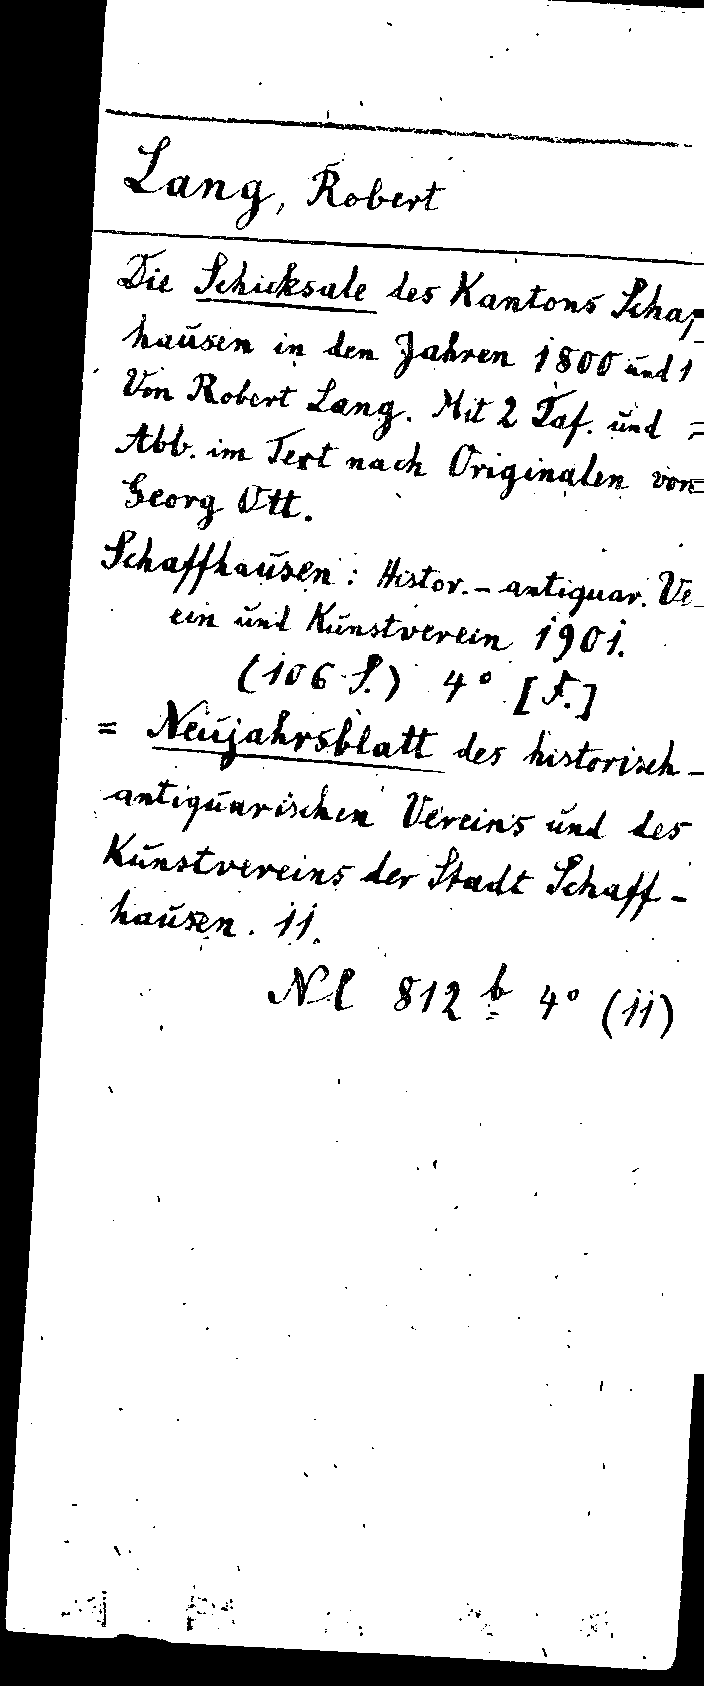 Lang, Robert
Die Schicksale des Kantons Schaf
hausen in den Jahren 1800 und 1
Von Robert Lang. Mit 2 Taf. und
Abb. im Text nach Originalen von
Georg Ott.
Schaffhausen: Histor.-antiquar. Ve
ein und Kunstverein 1901.
(106 S.) 4° [F.]
= Neujahrsblatt des historisch-
antiquarischen Vereins und des
Kunstvereins der Stadt Schaff-
hausen. 11.
Nl 812 b 4° (11)